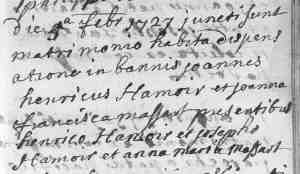 die 9a febr 1727 juncti sunt
matrimonio habita dispens
atione in bannis joannes
henricus Hamoir et joanna
francisca massart presentibus
henrico Hamoir et josepho
Hamoir et anna maria massart